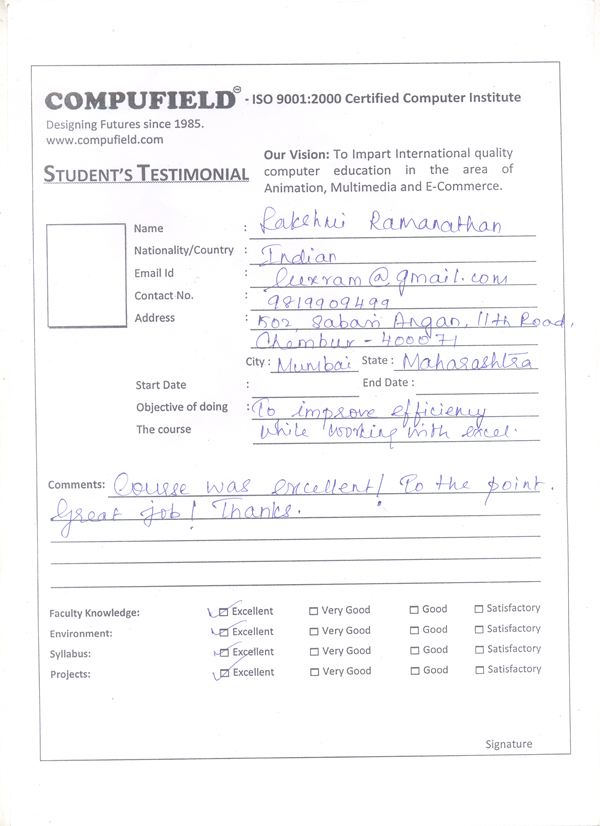 COMPUFIELD TM - ISO 9001:2000 Certified Computer Institute
Designing Futures since 1985.
www.compufield.com
STUDENT'S TESTIMONIAL
Our Vision: To Impart International quality
computer education in the area of
Animation, Multimedia and E-Commerce.
Name : Lakshmi Ramanathan
Nationality/Country : Indian
Email Id : luxram@gmail.com
Contact No. : 9819909499
Address : 502, Sabari Angan, 11th Road,
Chembur - 400071
City : Mumbai State : Maharashtra
Start Date : End Date :
Objective of doing : To improve efficiency
The course while working with excel.
Comments: Course was excellent! To the point.
Great job! Thanks.
Faculty Knowledge: Excellent Very Good Good Satisfactory
Environment: Excellent Very Good Good Satisfactory
Syllabus: Excellent Very Good Good Satisfactory
Projects: Excellent Very Good Good Satisfactory
Signature